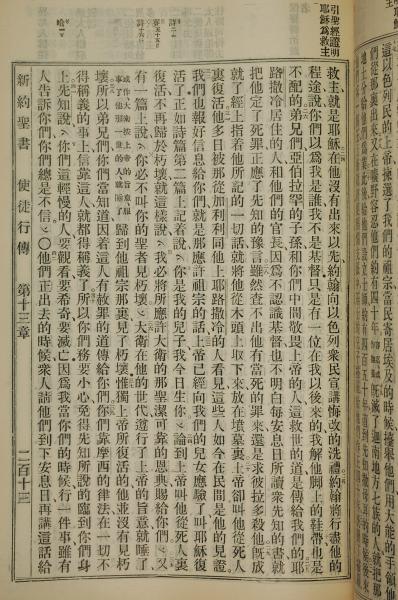 引聖經證明
耶穌爲救主
救主就是耶穌在他沒有出來以先約翰向以色列衆民宣講悔改的洗禮約翰將行盡他的
程途說你們以爲我是誰我不是基督只是有一位在我以後來的我解他脚上的鞋帶也是
不配的弟兄們亞伯拉罕的子孫和你們中間敬畏上帝的人這救世的道是傳給我們的耶
路撒冷居住的人和他們的官長因爲不認識基督也不明白每安息日所讀衆先知的書就
把他定了死罪正應了先知的豫言雖然查不出他有當死的罪來還是求彼拉多殺他旣成
就了經上指着他所記的一切話就將他從木頭上取下來放在墳墓裏上帝卻叫他從死人
裏復活他多日被那從加利利同他上耶路撒冷的人看見這些人如今在民間是他的見證
我們也報好信息給你們就是那應許祖宗的話上帝已經向我們的兒女應驗了叫耶穌復
活了正如詩篇第二篇上記着說你是我的兒子我今日生你論到上帝叫他從死人裏
復活不再歸於朽壞就這樣說我必將所應許大衛的那聖潔可靠的恩典賜給你們又
有一篇上說你必不叫你的聖者見朽壞大衛在他的世代遵行了上帝的旨意就睡了
歸到他祖宗那裏見了朽壞惟獨上帝所復活的他並沒有見朽
壞所以弟兄們你們當知道因着這人有赦罪的道傳給你們你們靠摩西的律法在一切不
得稱義的事上信靠這人就都得稱義了所以你們務要小心免得先知所說的臨到你們身
上先知說你們這輕慢的人要觀看要希奇要滅亡因爲我當你們的時候行一件事雖有
人告訴你們你們總是不信〇他們正出去的時候衆人請他們到下安息日再講這話給
新約聖書 使徒行傳 第十三章 二百十三